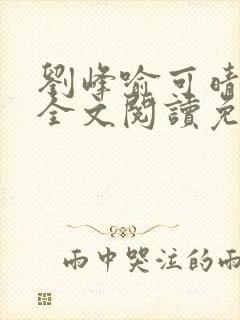 劉峰喻可晴
全文閱讀免
雨中哭注的雨